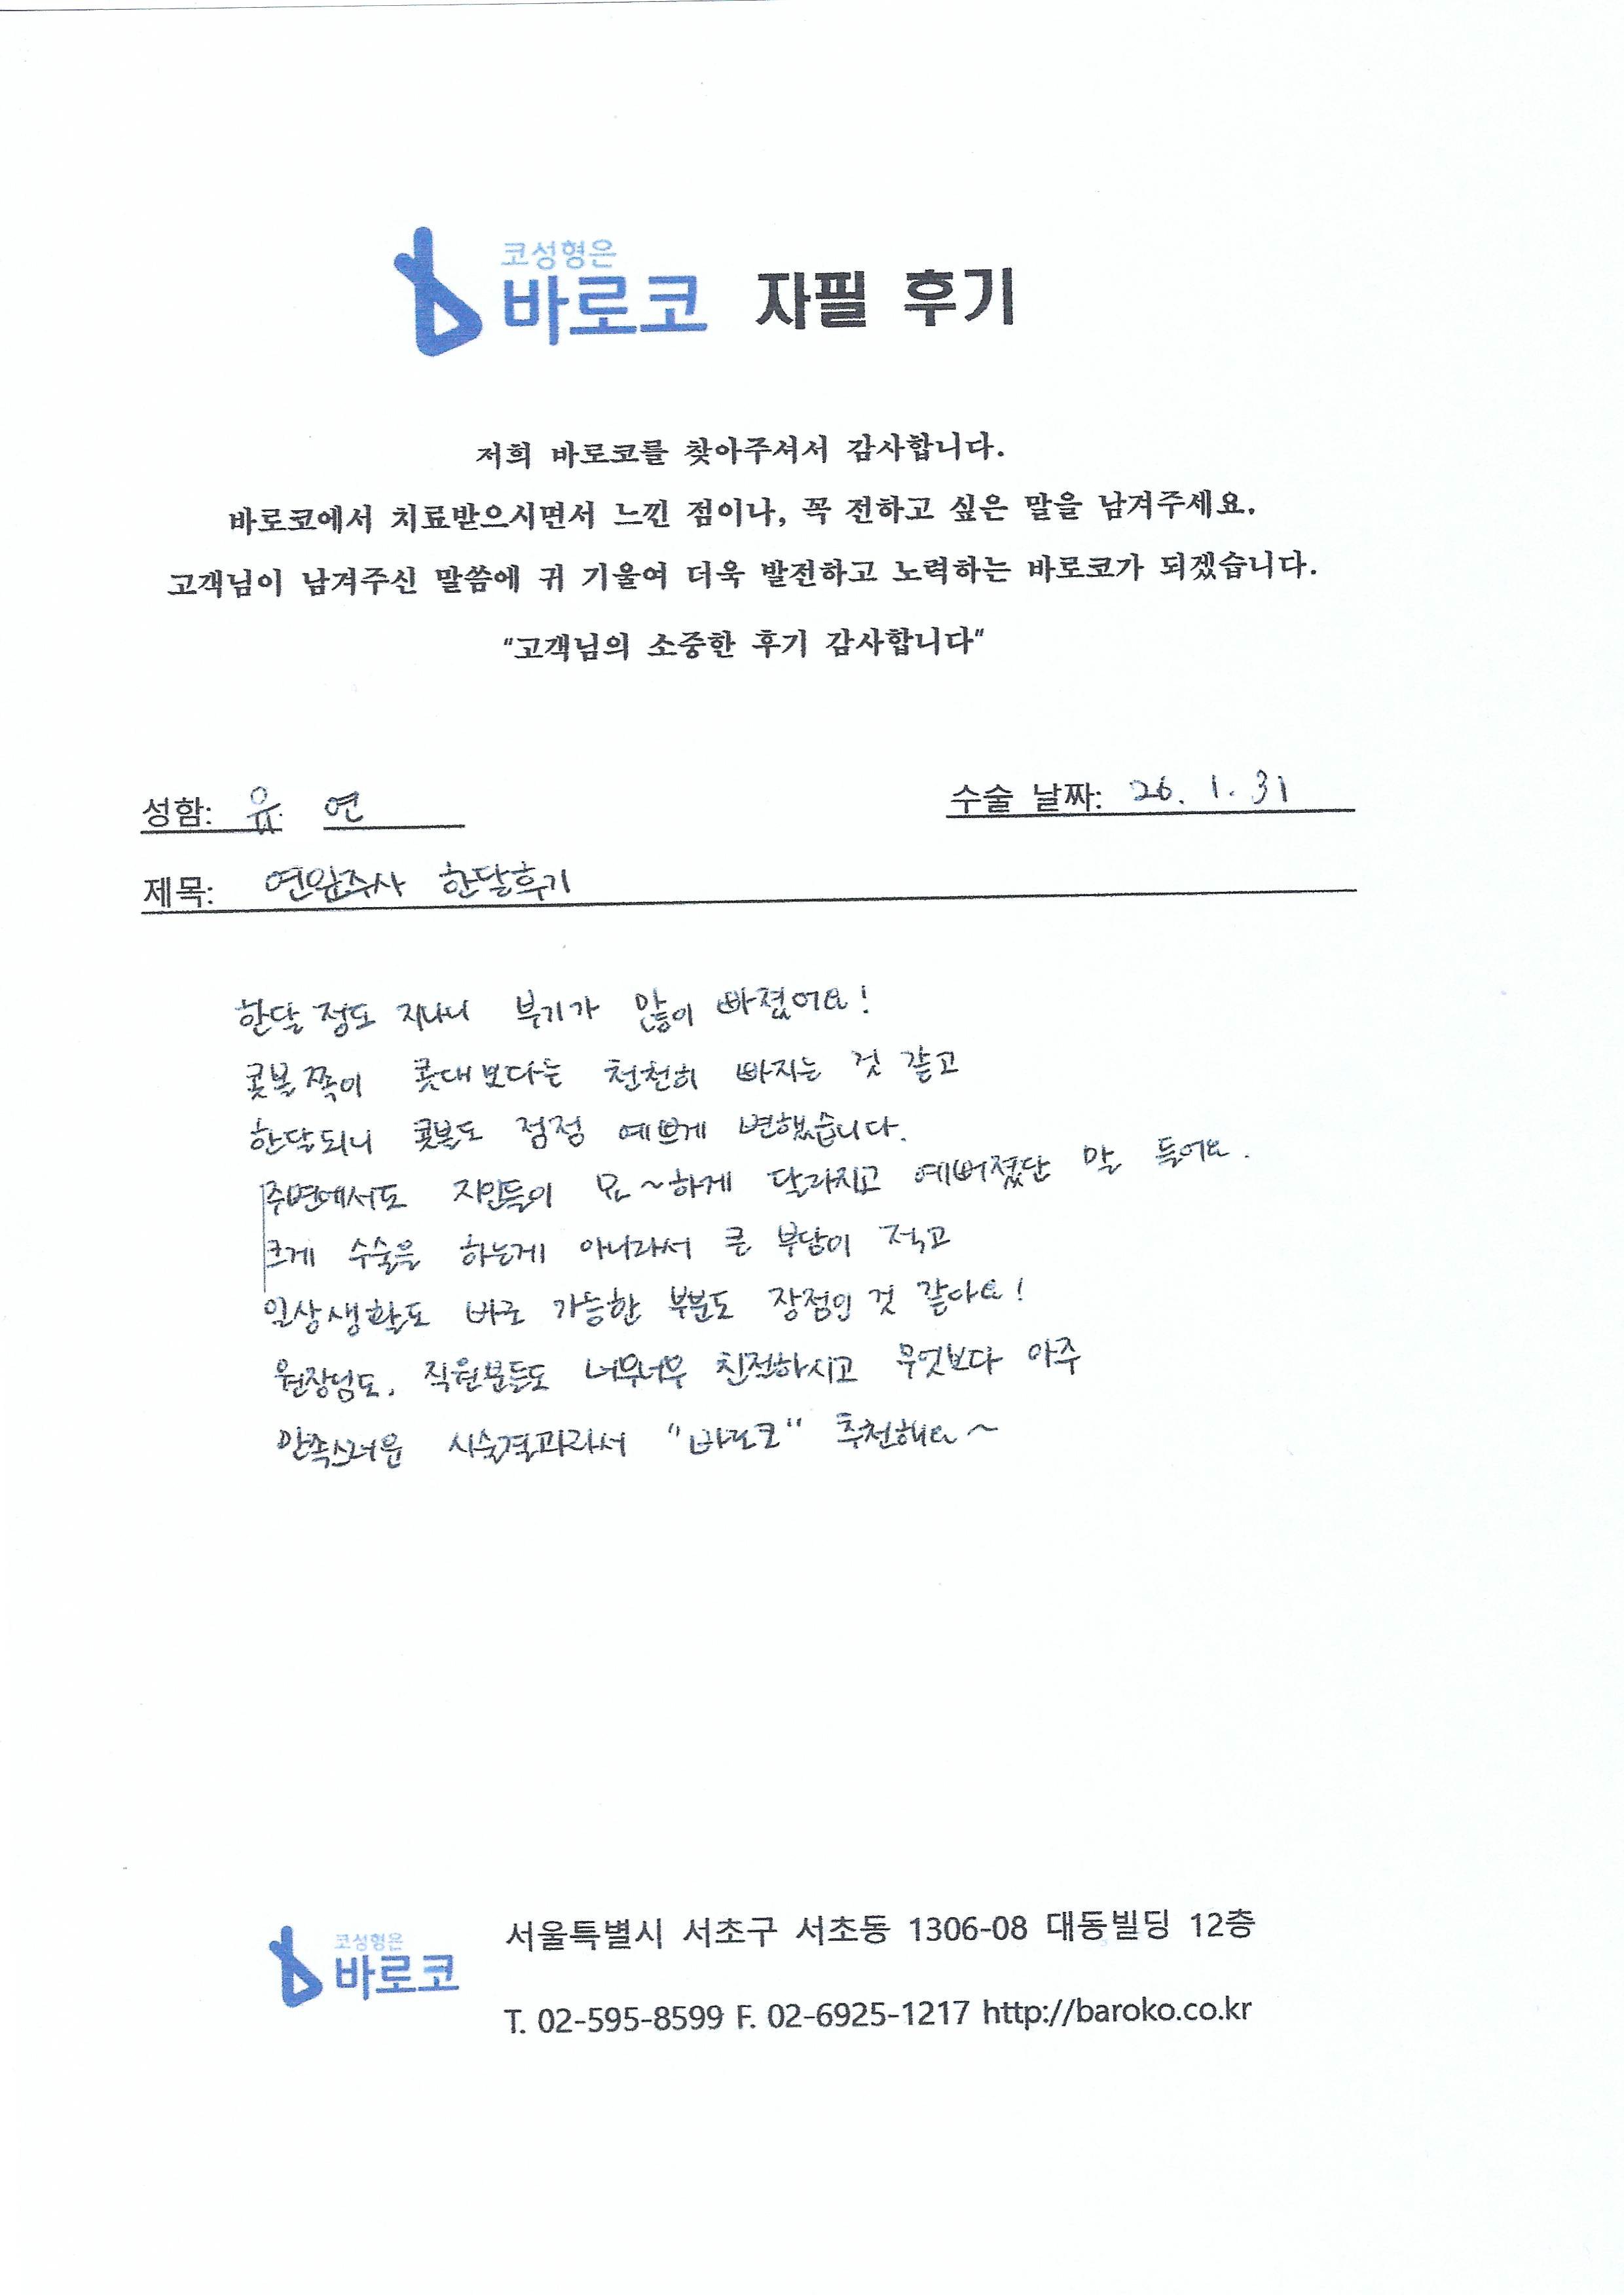 코성형은
바로코 자필 후기
저희 바로코를 찾아주셔서 감사합니다.
바로코에서 치료받으시면서 느낀 점이나, 꼭 전하고 싶은 말을 남겨주세요.
고객님이 남겨주신 말씀에 귀 기울여 더욱 발전하고 노력하는 바로코가 되겠습니다.
"고객님의 소중한 후기 감사합니다"
성함: 유 연 수술 날짜: 26. 1. 31
제목: 연앞주사 한달후기
한달 정도 지나니 부기가 많이 빠졌어요!
콧볼쪽이 콧대보다는 천천히 빠지는 것 같고
한달되니 콧볼도 점점 예쁘게 변했습니다.
주변에서도 지인들이 묘~하게 달라지고 예뻐졌단 말 듣어요.
크게 수술을 하는게 아니라서 큰 부담이 적고
일상생활도 바로 가능한 부분도 장점인 것 같아요!
원장님도, 직원분들도 너무너무 친절하시고 무엇보다 아주
만족스러운 시술결과라서 "바로코" 추천해요~
코성형은
바로코
서울특별시 서초구 서초동 1306-08 대동빌딩 12층
T. 02-595-8599 F. 02-6925-1217 http://baroko.co.kr